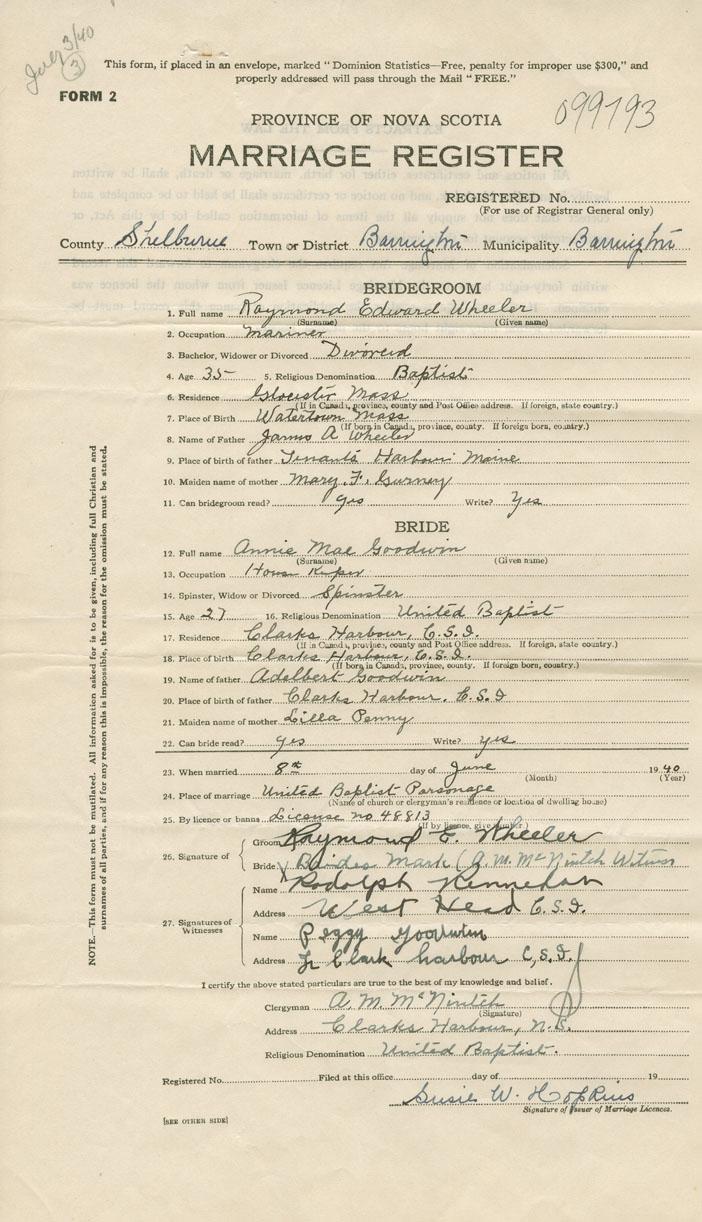 July 3/40
3
This form, if placed in an envelope, marked "Dominion Statistics—Free, penalty for improper use $300," and
properly addressed will pass through the Mail "FREE."
FORM 2
099793
PROVINCE OF NOVA SCOTIA
MARRIAGE REGISTER
REGISTERED No.
(For use of Registrar General only)
County Shelburne Town or District Barrington Municipality Barrington
BRIDEGROOM
1. Full name Raymond Edward Wheeler
(Surname) (Given name)
2. Occupation Mariner
3. Bachelor, Widower or Divorced Divorced
4. Age 35 5. Religious Denomination Baptist
6. Residence Glocester Mass
(If in Canada, province, county and Post Office address. If foreign, state country.)
7. Place of Birth Watertown Mass
(If born in Canada, province, county. If foreign born, country.)
8. Name of Father James A Wheeler
9. Place of birth of father Tenants Harbour Maine
10. Maiden name of mother Mary F. Gurney
11. Can bridegroom read? yes Write? Yes
BRIDE
12. Full name Annie Mae Goodwin
(Surname) (Given name)
13. Occupation House Keeper
14. Spinster, Widow or Divorced Spinster
15. Age 27 16. Religious Denomination United Baptist
17. Residence Clarks Harbour, C.S.I.
(If in Canada, province, county and Post Office address. If foreign, state country.)
18. Place of birth Clarks Harbour, C.S.I.
(If born in Canada, province, county. If foreign born, country.)
19. Name of father Adelbert Goodwin
20. Place of birth of father Clarks Harbour. C.S.I
21. Maiden name of mother Lilla Penny
22. Can bride read? yes Write? yes
23. When married 8th day of June 1940
(Month) (Year)
24. Place of marriage United Baptist Parsonage
(Name of church or clergyman's residence or location of dwelling house)
25. By licence or banns License no 48813
(If by licence, give number)
26. Signature of
Groom Raymond E. Wheeler
Bride X Brides Mark (A. M. McNintch Witness
27. Signatures of Witnesses
Name Rodolph Kennedy
Address West Head C.S.I.
Name Peggy Goodwin
Address Clark harbour C,S.I.
I certify the above stated particulars are true to the best of my knowledge and belief.
Clergyman A. M. McNintch
(Signature)
Address Clarks Harbour, N.S.
Religious Denomination United Baptist.
Registered No. Filed at this office day of 19
Susie W. Hopkins
Signature of Issuer of Marriage Licences.
[SEE OTHER SIDE]
NOTE.—This form must not be mutilated. All information asked for is to be given, including full Christian and
surnames of all parties, and if for any reason this is impossible, the reason for the omission must be stated.